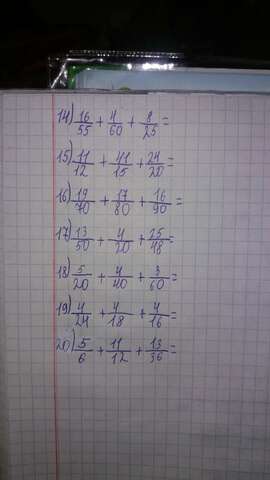 14) 16/55 + 4/60 + 8/25 =
15) 11/12 + 41/15 + 24/20 =
16) 19/70 + 17/80 + 16/90 =
17) 13/50 + 4/20 + 25/48 =
18) 5/20 + 4/40 + 3/60 =
19) 4/24 + 4/18 + 4/16 =
20) 5/6 + 11/12 + 13/36 =